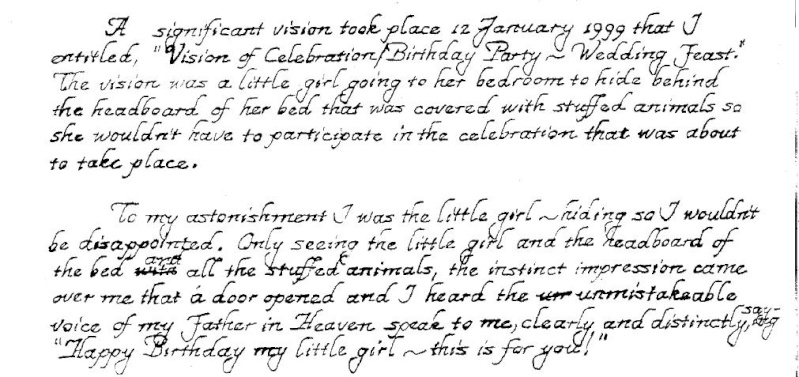 A significant vision took place 12 January 1999 that I
entitled, "Vision of Celebration/Birthday Party ~ Wedding Feast."
The vision was a little girl going to her bedroom to hide behind
the headboard of her bed that was covered with stuffed animals so
she wouldn't have to participate in the celebration that was about
to take place.
To my astonishment I was the little girl ~ hiding so I wouldn't
be disappointed. Only seeing the little girl and the headboard of
the bed with and all the stuffed animals, the instinct impression came
over me that a door opened and I heard the un unmistakeable
voice of my Father in Heaven speak to me, clearly and distinctly, saying
"Happy Birthday my little girl ~ this is for you!"